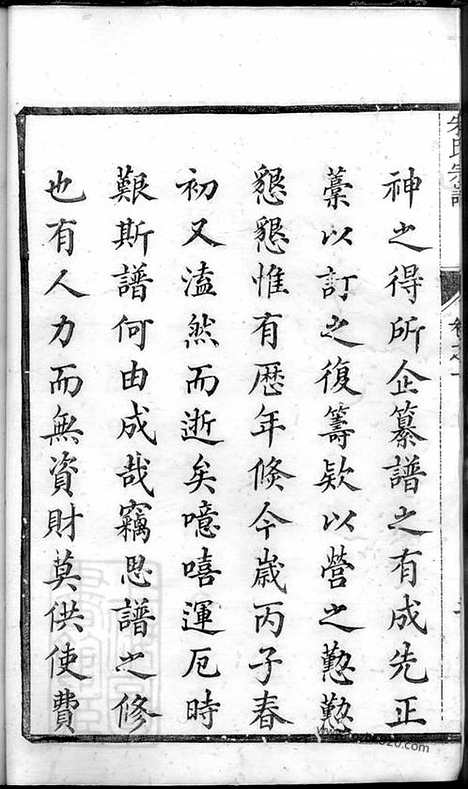 宗譜
神之得所企纂譜之有成先正
藁以訂之復籌欵以營之懃懃
懇懇惟有歷年倏今歲丙子春
初又溘然而逝矣噫嘻運厄時
艱斯譜何由成哉竊思譜之修
也有人力而無資財莫供使費